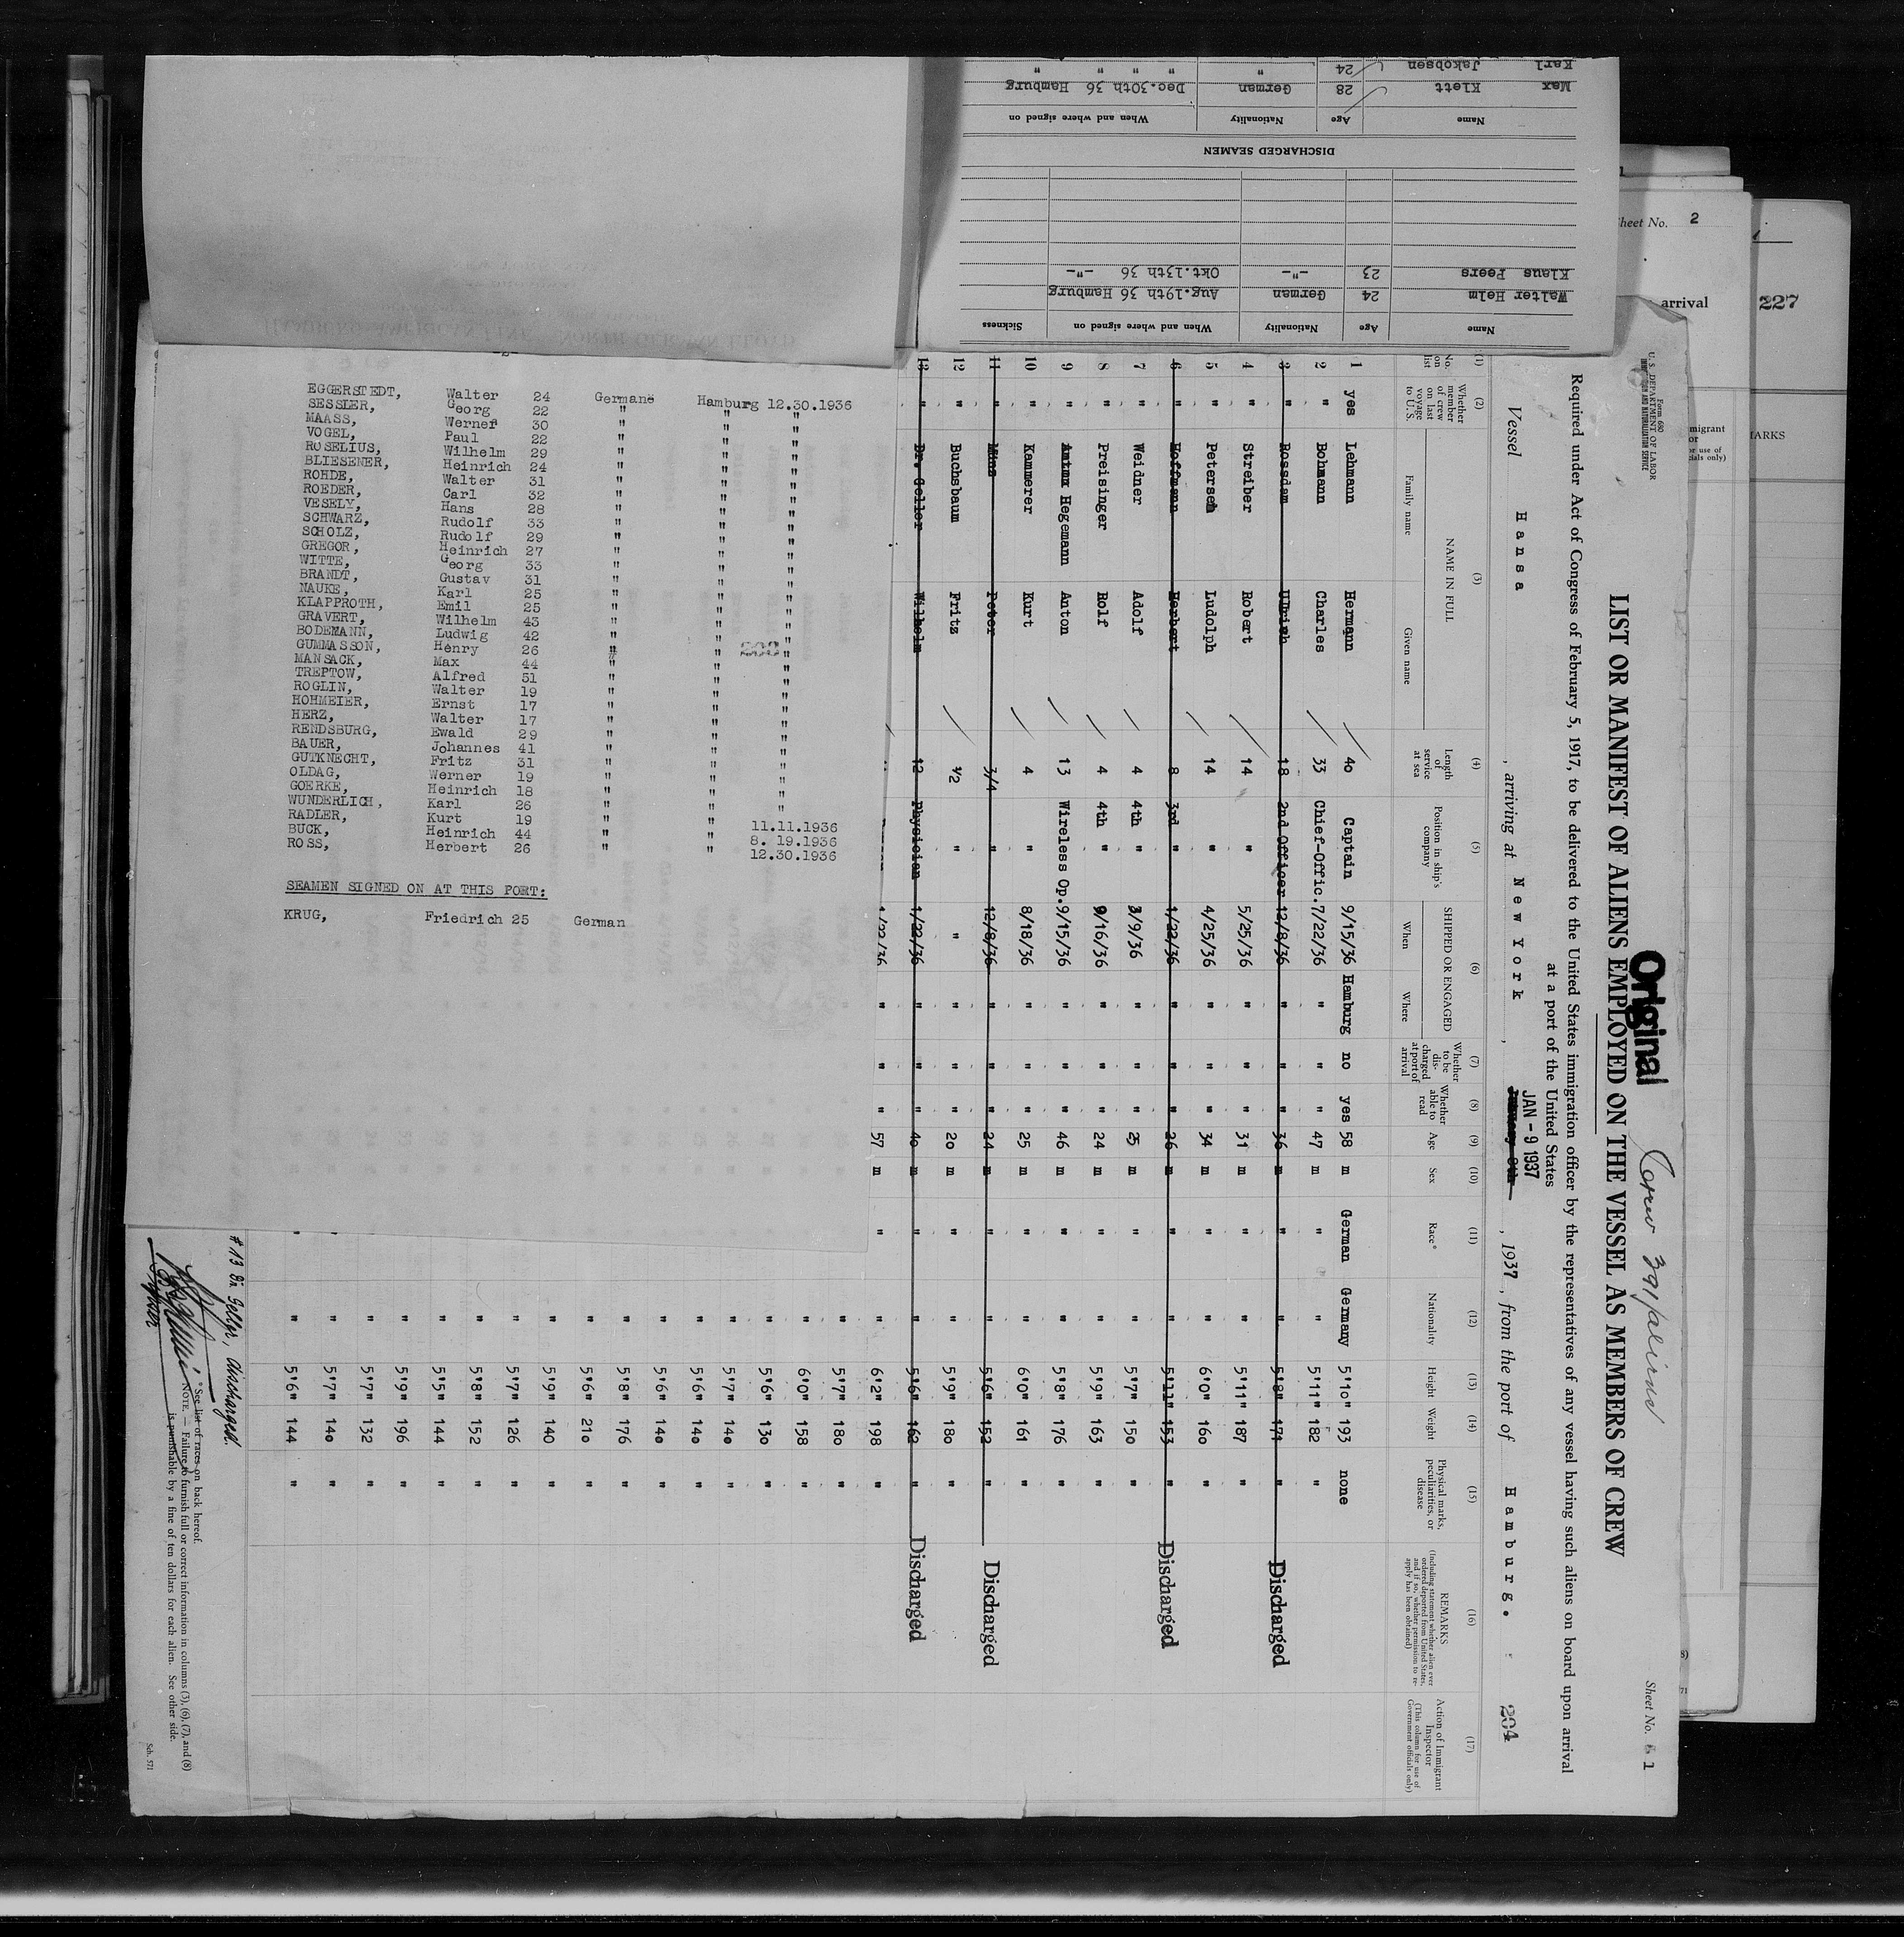 HAMBURG-AMERICAN LINE NORTH GERMAN LLOYD
EGGERSTEDT, Walter 24 Germanë Hamburg 12.30.1936
SESSLER, Georg 22 " " "
MAASS, Werner 30 " " "
VOGEL, Paul 22 " " "
ROSELIUS, Wilhelm 29 " " "
BLIESENER, Heinrich 24 " " "
ROHDE, Walter 31 " " "
ROEDER, Carl 32 " " "
VESELY, Hans 28 " " "
SCHWARZ, Rudolf 33 " " "
SCHOLZ, Rudolf 29 " " "
GREGOR, Heinrich 27 " " "
WITTE, Georg 33 " " "
BRANDT, Gustav 31 " " "
NAUKE, Karl 25 " " "
KLAPPROTH, Emil 25 " " "
GRAVERT, Wilhelm 43 " " "
BODEMANN, Ludwig 42 " " "
GUMMASSON, Henry 26 " " "
MANSACK, Max 44 " " "
TREPTOW, Alfred 51 " " "
ROGLIN, Walter 19 " " "
HOHMEIER, Ernst 17 " " "
HERZ, Walter 17 " " "
RENDSBURG, Ewald 29 " " "
BAUER, Johannes 41 " " "
GUTKNECHT, Fritz 31 " " "
OLDAG, Werner 19 " " "
GOERKE, Heinrich 18 " " "
WUNDERLICH, Karl 26 " " "
RADLER, Kurt 19 " " 11.11.1936
BUCK, Heinrich 44 " " 8. 19.1936
ROSS, Herbert 26 " " 12.30.1936
SEAMEN SIGNED ON AT THIS PORT:
KRUG, Friedrich 25 German
Name Age Nationality When and where signed on Sickness
Walter Helm 24 German Aug.19th 36 Hamburg
Klaus Peers 23 -"- Okt.13th 36 -"-
DISCHARGED SEAMEN
Name Age Nationality When and where signed on
Max Klett 28 German Dec.30th 36 Hamburg
Karl Jakobsen 24 " " " " "
Sheet No. 2
arrival
227
Form 680
U. S. DEPARTMENT OF LABOR
IMMIGRATION AND NATURALIZATION SERVICE
Original
Crew 391/aliens
Sheet No. 1
LIST OR MANIFEST OF ALIENS EMPLOYED ON THE VESSEL AS MEMBERS OF CREW
Required under Act of Congress of February 5, 1917, to be delivered to the United States immigration officer by the representatives of any vessel having such aliens on board upon arrival
at a port of the United States
JAN - 9 1937
Vessel Hansa , arriving at New York , January 8th , 1937 , from the port of Hamburg. 204
(1) (2) (3) (4) (5) (6) (7) (8) (9) (10) (11) (12) (13) (14) (15) (16) (17)
No. on list
Whether member of crew on last voyage to U.S.
NAME IN FULL
Family name
Given name
Length of service at sea
Position in ship's company
SHIPPED OR ENGAGED
When
Where
Whether to be discharged at port of arrival
Whether able to read
Age
Sex
Race*
Nationality
Height
Weight
Physical marks, peculiarities, or disease
REMARKS
(Including statement whether alien ever ordered deported from United States, and if so, whether permission to reapply has been obtained)
Action of Immigrant Inspector
(This column for use of Government officials only)
1 yes Lehmann Hermann 40 Captain 9/15/36 Hamburg no yes 58 m German Germany 5'10" 193 none
2 " Bohmann Charles 33 Chief-Offic. 7/22/36 " " " 47 m " " 5'11" 182 "
3 " Rossdam Ulrich 18 2nd Officer 12/8/36 " " " 36 m " " 5'8" 171 " Discharged
4 " Streiber Robert 14 " 5/25/36 " " " 31 m " " 5'11" 187 "
5 " Petersen Ludolph 14 " 4/25/36 " " " 34 m " " 6'0" 160 "
6 " Hoffmann Herbert 8 3rd " 1/22/36 " " " 26 m " " 5'11" 153 " Discharged
7 " Weidner Adolf 4 4th " 3/9/36 " " " 25 m " " 5'7" 150 "
8 " Preisinger Rolf 4 4th " 9/16/36 " " " 24 m " " 5'9" 163 "
9 " Hegemann Anton 13 Wireless Op. 9/15/36 " " " 46 m " " 5'8" 176 "
10 " Kammerer Kurt 4 " 8/18/36 " " " 25 m " " 6'0" 161 "
11 " Mins Peter 3/4 " 12/8/36 " " " 24 m " " 5'6" 152 " Discharged
12 " Buchsbaum Fritz 1/2 " " " " " 20 m " " 5'9" 180 "
13 " Dr. Geller Wilhelm 12 Physician 1/22/36 " " " 40 m " " 5'6" 162 " Discharged
1/22/36 " " " 57 m " " 6'2" 198 "
" 5'7" 180 "
" 6'0" 158 "
" 5'6" 130 "
" 5'7" 140 "
" 5'6" 140 "
" 5'6" 140 "
" 5'8" 176 "
" 5'6" 210 "
" 5'9" 140 "
" 5'7" 126 "
" 5'8" 152 "
" 5'5" 144 "
" 5'9" 196 "
" 5'7" 132 "
" 5'7" 140 "
" 5'6" 144 "
# 13 Dr. Geller, discharged.
* See list of races on back hereof.
NOTE. — Failure to furnish full or correct information in columns (3), (6), (7), and (8)
is punishable by a fine of ten dollars for each alien. See other side.
Sch. 571